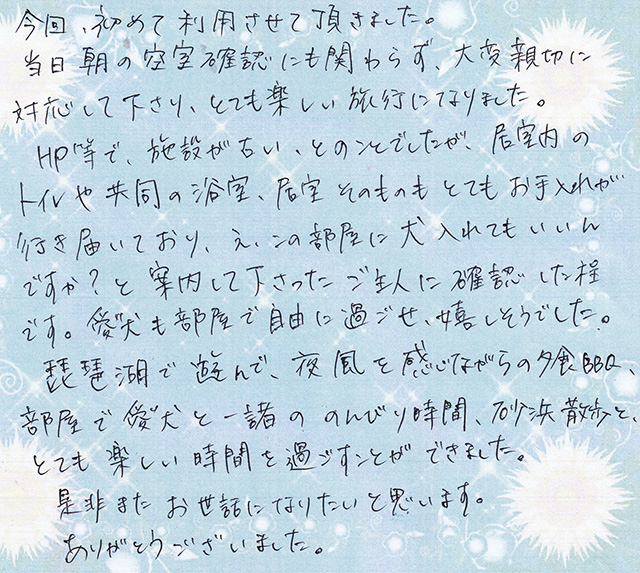 今回、初めて利用させて頂きました。
当日朝の空室確認にも関わらず、大変親切に
対応して下さり、とても楽しい旅行になりました。
HP等で、施設が古い、とのことでしたが、居室内の
トイレや共同の浴室、居室そのものもとてもお手入れが
行き届いており、え、この部屋に犬入れてもいいん
ですか?と案内して下さったご主人に確認した程
です。愛犬も部屋で自由に過ごせ、嬉しそうでした。
琵琶湖で遊んで、夜風を感じながらの夕食BBQ、
部屋で愛犬と一諸ののんびり時間、砂浜散歩と、
とても楽しい時間を過ごすことができました。
是非またお世話になりたいと思います。
ありがとうございました。